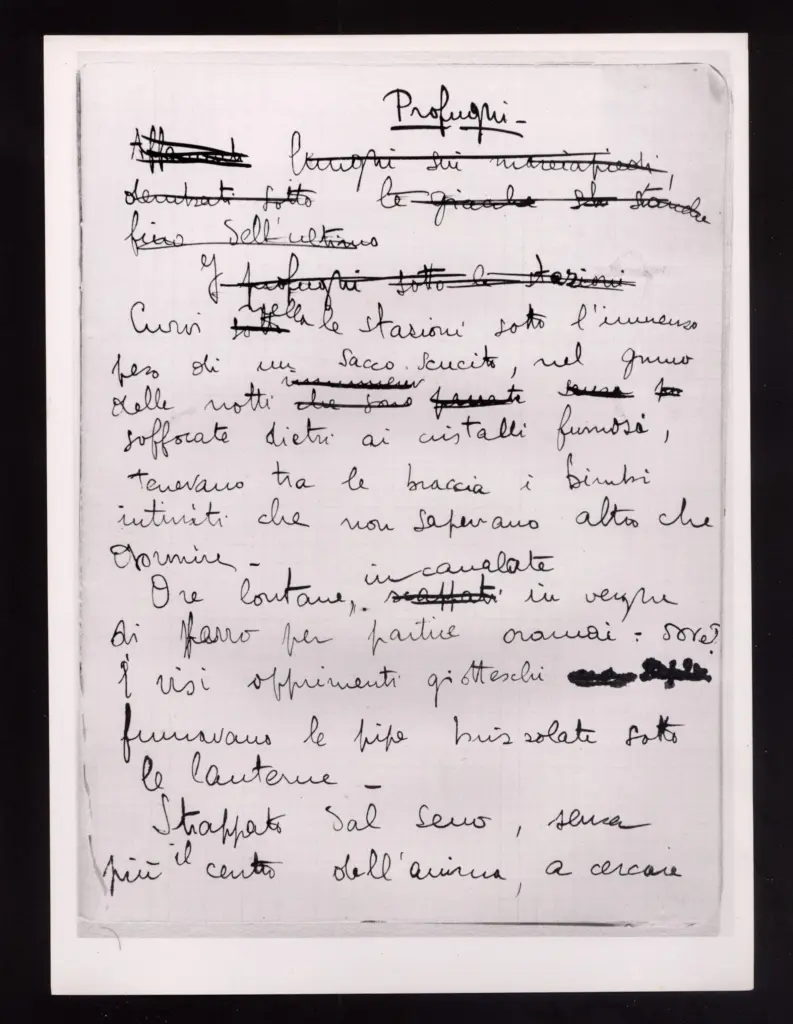 Profughi -
lunghi sui marciapiedi,
sotto le giacche
fino dell'ultimo
I profughi sotto le stazioni
Curvi sotto nella le stazioni sotto l'immenso
peso di un sacco scucito, nel grumo
delle notti che sono
soffocate dietro ai cristalli fumosi,
tenevano tra le braccia i bimbi
intiriziti che non sapevano altro che
dormire -
Ore lontane, incanalate in verghe
di ferro per partire oramai : dove?
I visi opprimenti giotteschi
fumavano le pipe sotto
le lanterne -
Strappato dal seno, senza
più il centro dell'anima, a cercare